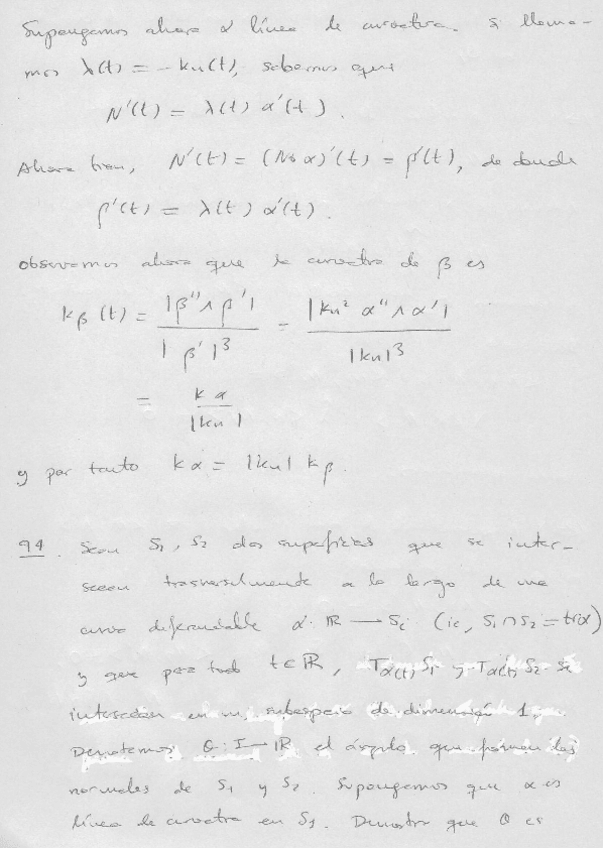 Supongamos ahora α línea de curvatura. Si llama-
mos λ(t) = -kn(t), sabemos que
N'(t) = λ(t) α'(t).
Ahora bien, N'(t) = (N∘α)'(t) = β'(t), de donde
β'(t) = λ(t) α'(t).
Observamos ahora que la curvatura de β es
kβ(t) = |β'' ∧ β'| / |β'|³ = |kn² α'' ∧ α'| / |kn|³
= kα / |kn|
y por tanto kα = |kn| kβ.
94. Sean S₁, S₂ dos superficies que se inter-
secan trasversalmente a lo largo de una
curva diferenciable α: ℝ → Sᵢ (ie, S₁ ∩ S₂ = trα)
y que para todo t ∈ ℝ, Tα(t)S₁ y Tα(t)S₂ se
intersecan en un subespacio de dimensión 1.
Denotemos θ: I → ℝ el ángulo que forman las
normales de S₁ y S₂. Supongamos que α es
línea de curvatura en S₁. Demostrar que θ es